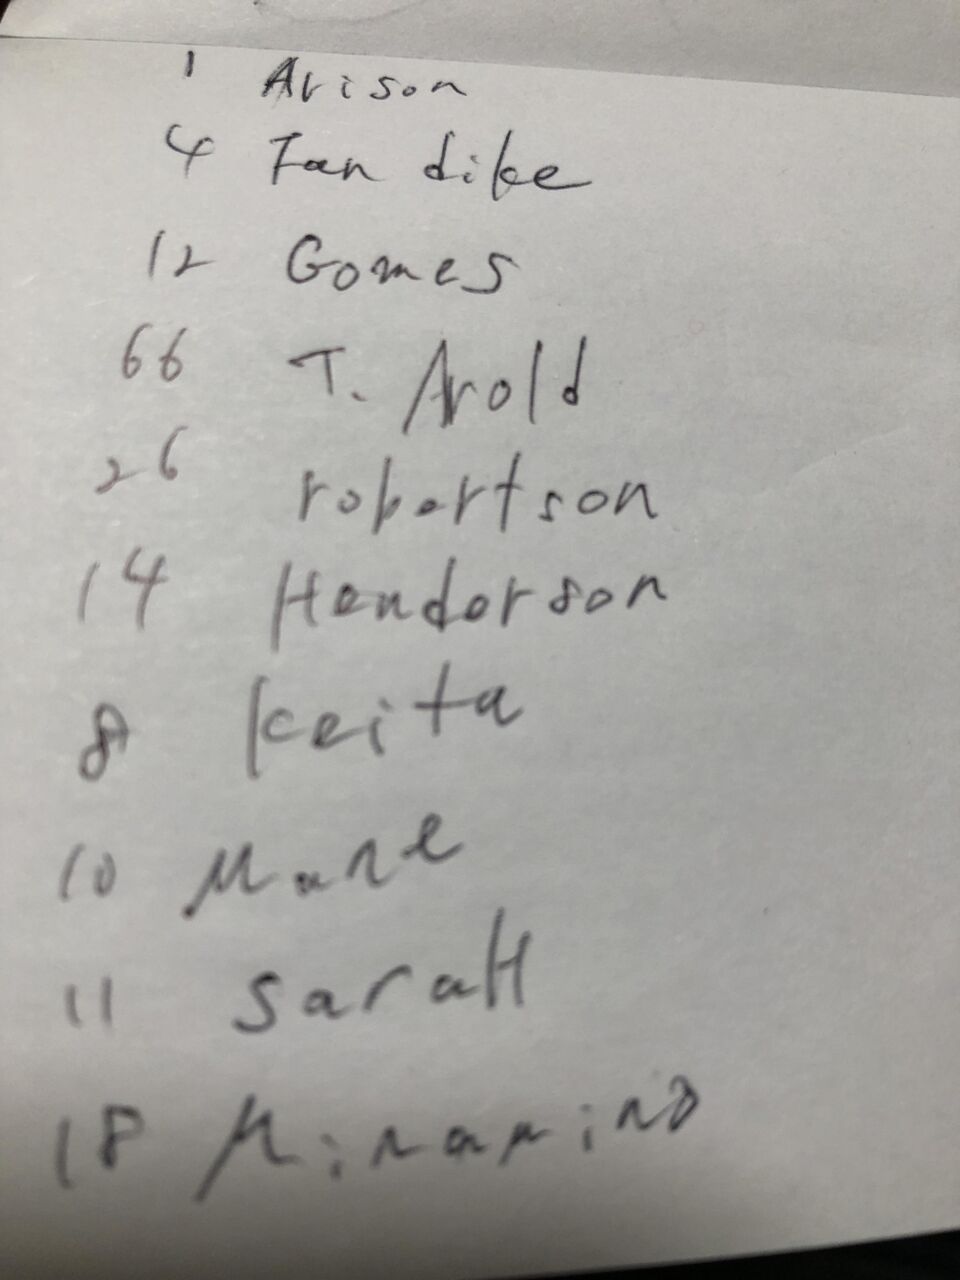 1 Arison
4 Fan dike
12 Gomes
66 T. Arold
26 robertson
14 Henderson
8 keita
10 Mane
11 SaraH
18 Minamino